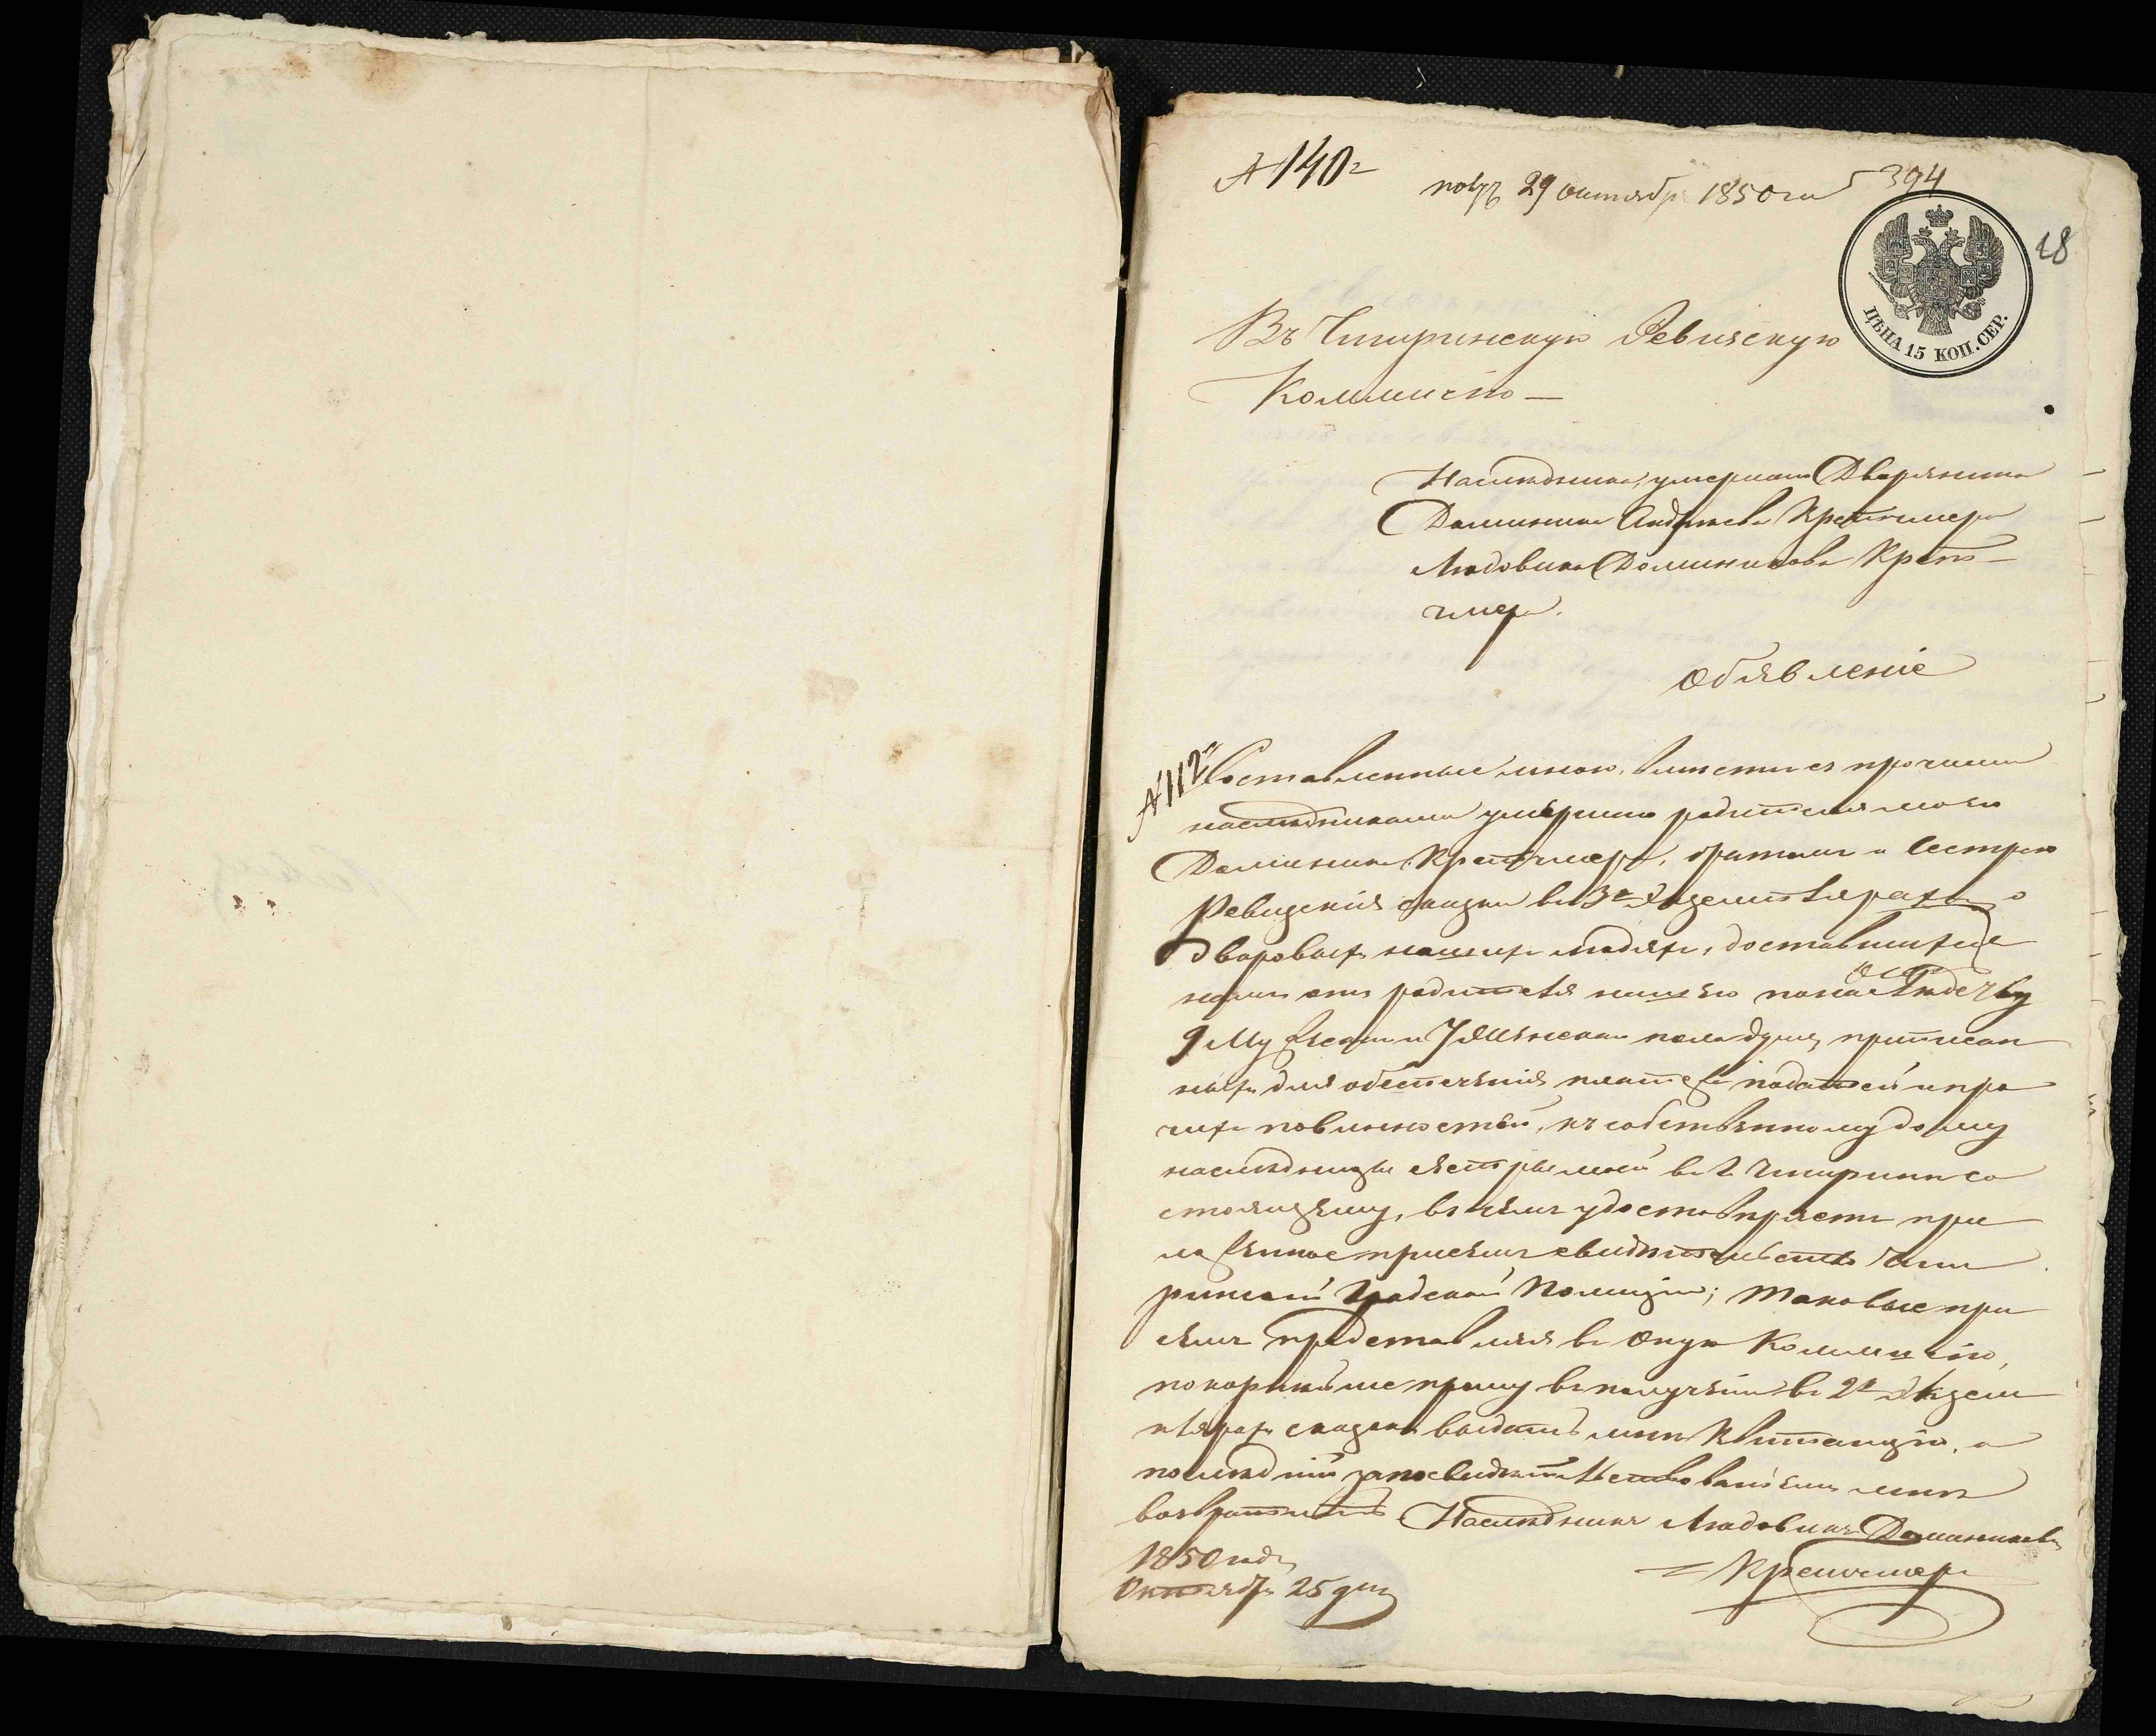 № 140
29 октября 1850 года
394
18
ЦѢНА 15 КОП. СЕР.
Въ Чигиринскую Ревизскую
Коммисію —
Наслѣдника умершаго Дворянина
Доминика Андреева Кретчмера
Людовика Доминикова Крет-
чмера.
Объявленіе
№ 112
Составленные мною, вмѣстѣ съ прочими
наслѣдниками умершаго родителя моего
Доминика Кретчмера, братомъ и Сестрою
Ревизскія сказки въ 3х Экземплярахъ о
дворовыхъ нашихъ людяхъ, доставшихся
намъ отъ родителя нашего
9 Муженска и 7 Женскаго пола душъ, приписан
ныхъ для обеспеченія платежа податей и про
чихъ повинностей, къ собственному дому
наслѣдницы Сестры моей въ г. Чигиринѣ со
стоящему, въ чемъ удостовѣряетъ при
лагаемое при семъ свидѣтельство Чиги
ринской Градской Полиціи; таковые при
семъ представляя въ оную Коммисію,
покорнѣйше прошу въ полученіи въ 2х Экзем
плярахъ сказокъ выдать мнѣ Квитанцію, а
послѣдній за посвидѣтельствованіемъ мнѣ
возвратить Наслѣдникъ Людовикъ Доминиковъ
1850 года
Октября 25 дня
Кретчмеръ